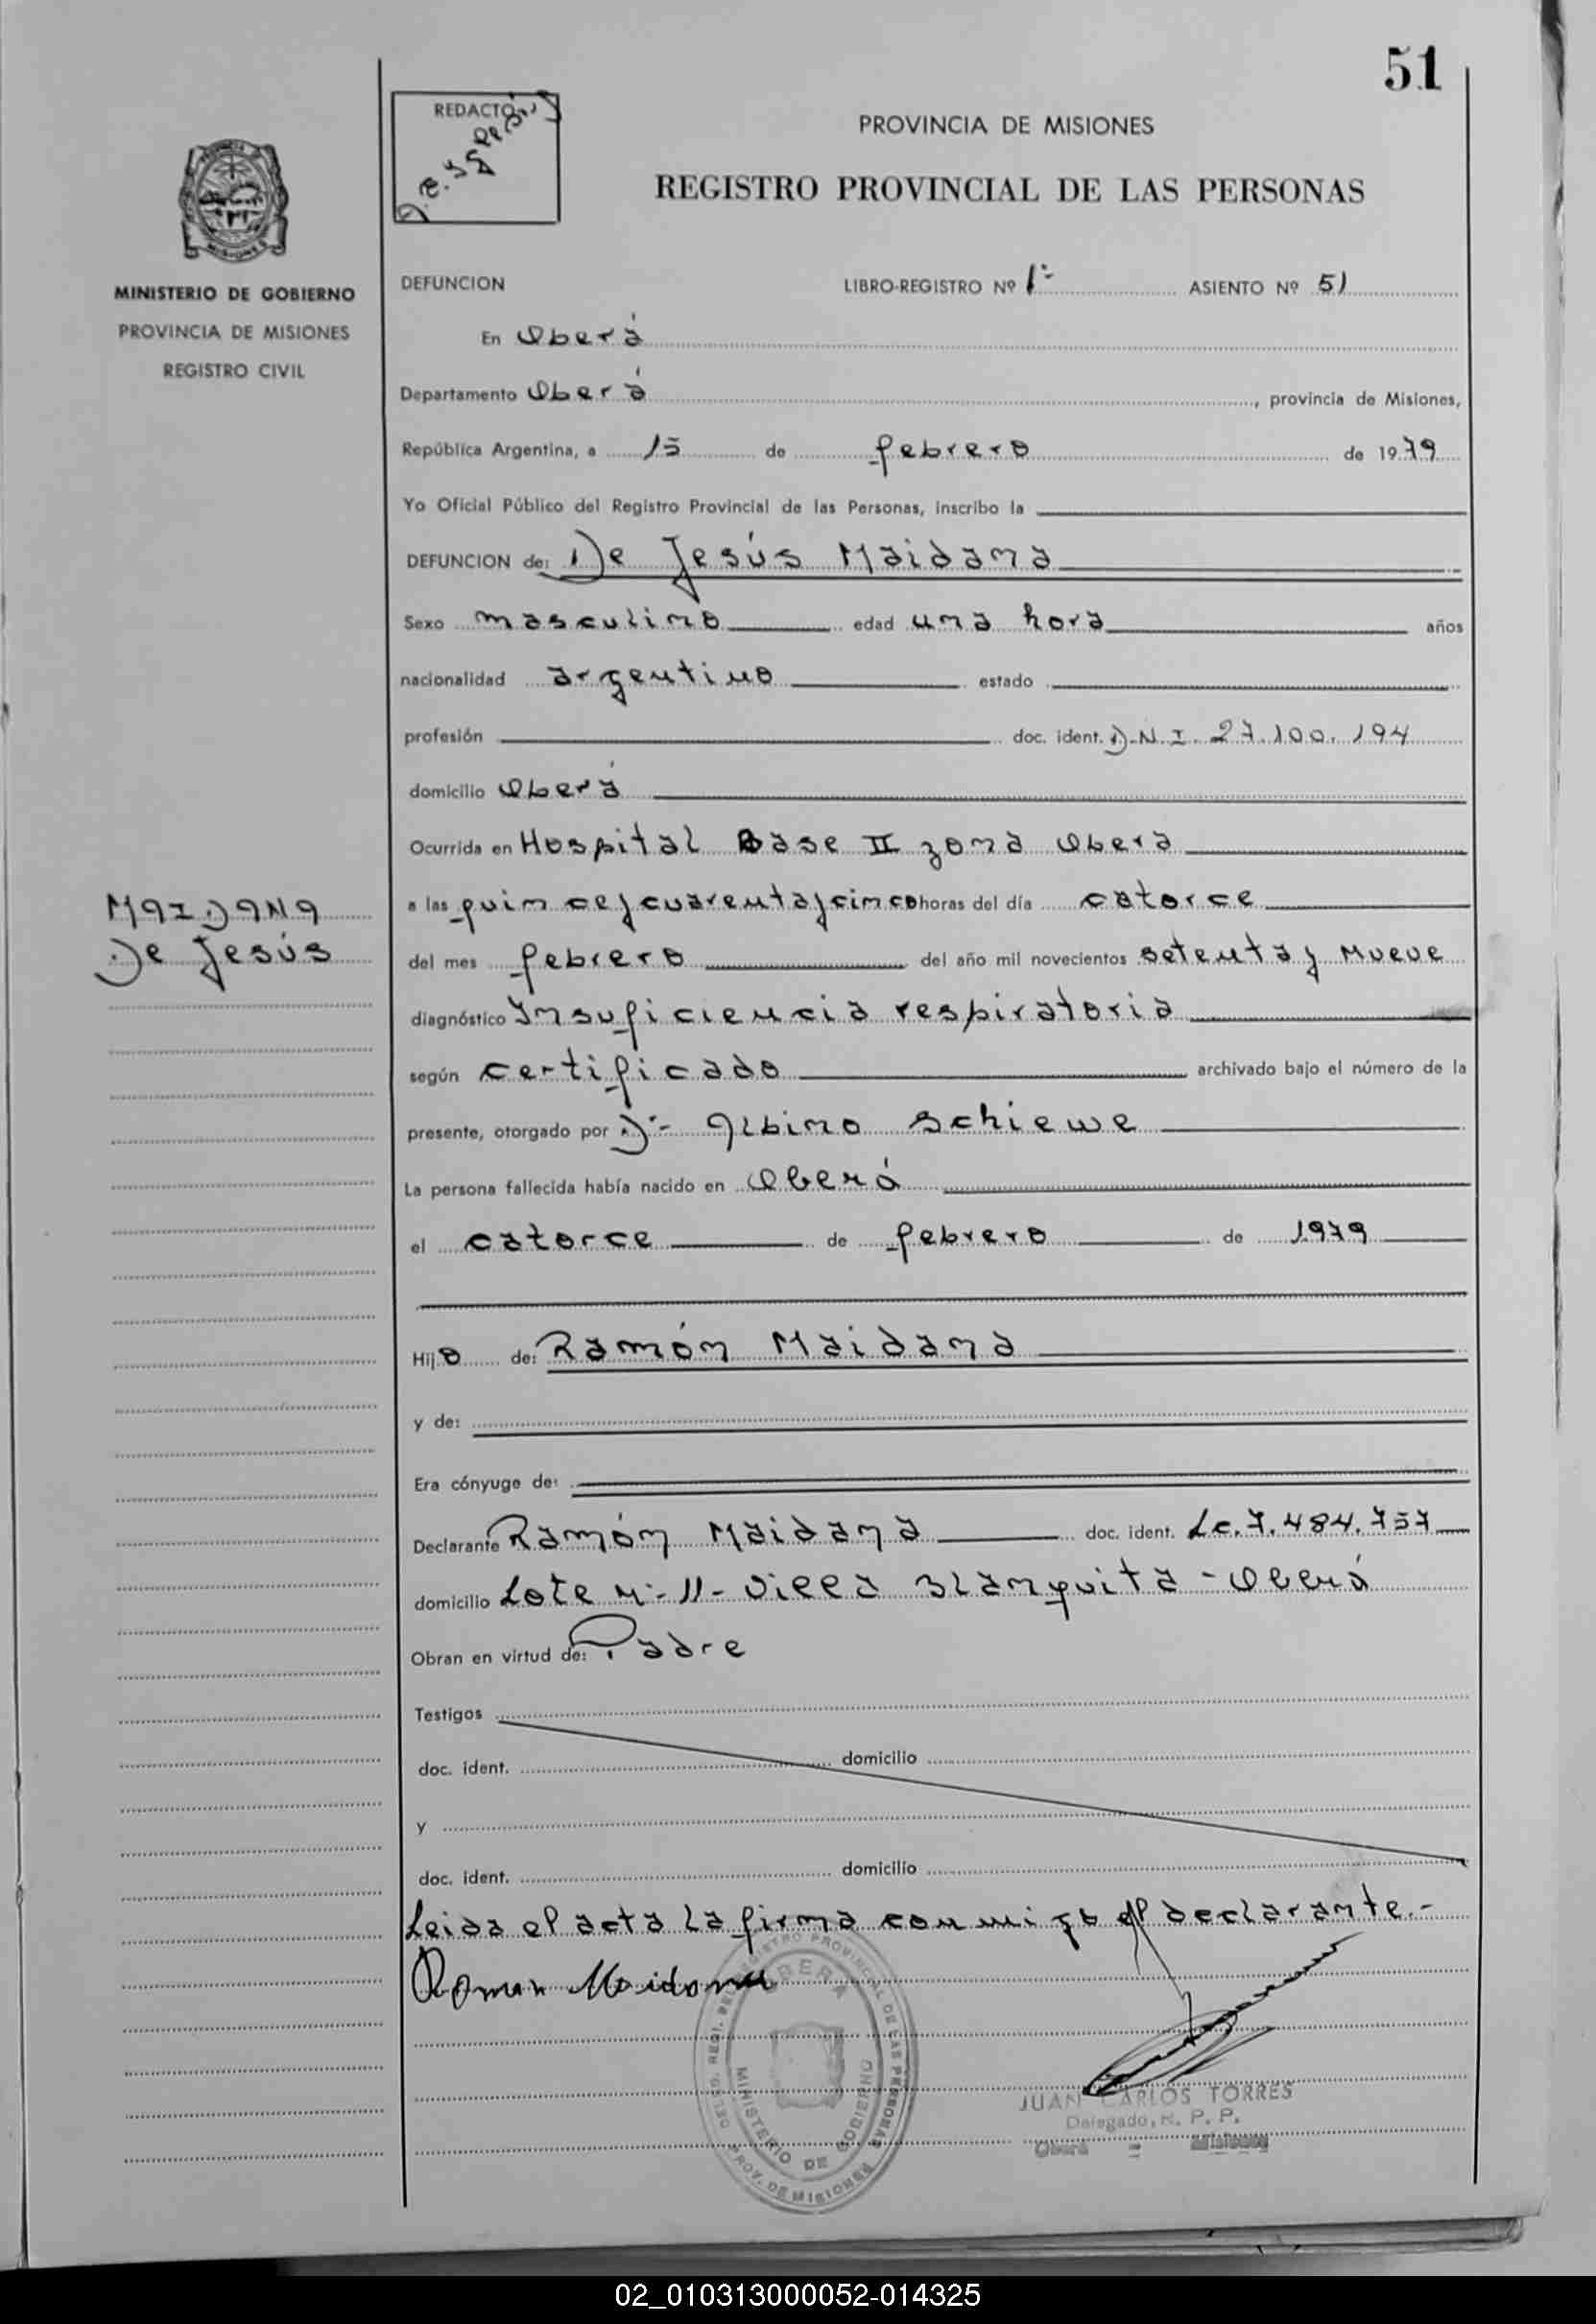 51
REDACTO
PROVINCIA DE MISIONES
REGISTRO PROVINCIAL DE LAS PERSONAS
MINISTERIO DE GOBIERNO
PROVINCIA DE MISIONES
REGISTRO CIVIL
DEFUNCION LIBRO-REGISTRO Nº 1º- ASIENTO Nº 51
En Oberá
Departamento Oberá, provincia de Misiones,
República Argentina, a 15 de febrero de 1979
Yo Oficial Público del Registro Provincial de las Personas, inscribo la
DEFUNCION de: De Jesús Maidana
Sexo masculino edad una hora años
nacionalidad argentino estado
profesión doc. ident. D.N.I. 27.100.194
domicilio Oberá
Ocurrida en Hospital Base II zona Oberá
MAIDANA
De Jesús
a las quince y cuarenta y cinco horas del día catorce
del mes febrero del año mil novecientos setenta y nueve
diagnóstico Insuficiencia respiratoria
según certificado archivado bajo el número de la
presente, otorgado por Dr- Albino Schiewe
La persona fallecida había nacido en Oberá
el catorce de febrero de 1979
Hijo de: Ramón Maidana
y de:
Era cónyuge de:
Declarante Ramón Maidana doc. ident. L.E. 7.484.757
domicilio Lote Nº- 11- Villa Blanquita - Oberá
Obran en virtud de: Padre
Testigos
doc. ident. domicilio
y
doc. ident. domicilio
Leida el acta la firma conmigo el declarante.-
Roman Maidana
DELEG. REGI. DEL REGISTRO PROVINCIAL DE LAS PERSONAS
OBERA
MINISTERIO DE GOBIERNO
PROV. DE MISIONES
JUAN CARLOS TORRES
Delegado, R. P. P.
Oberá - Misiones
02_010313000052-014325